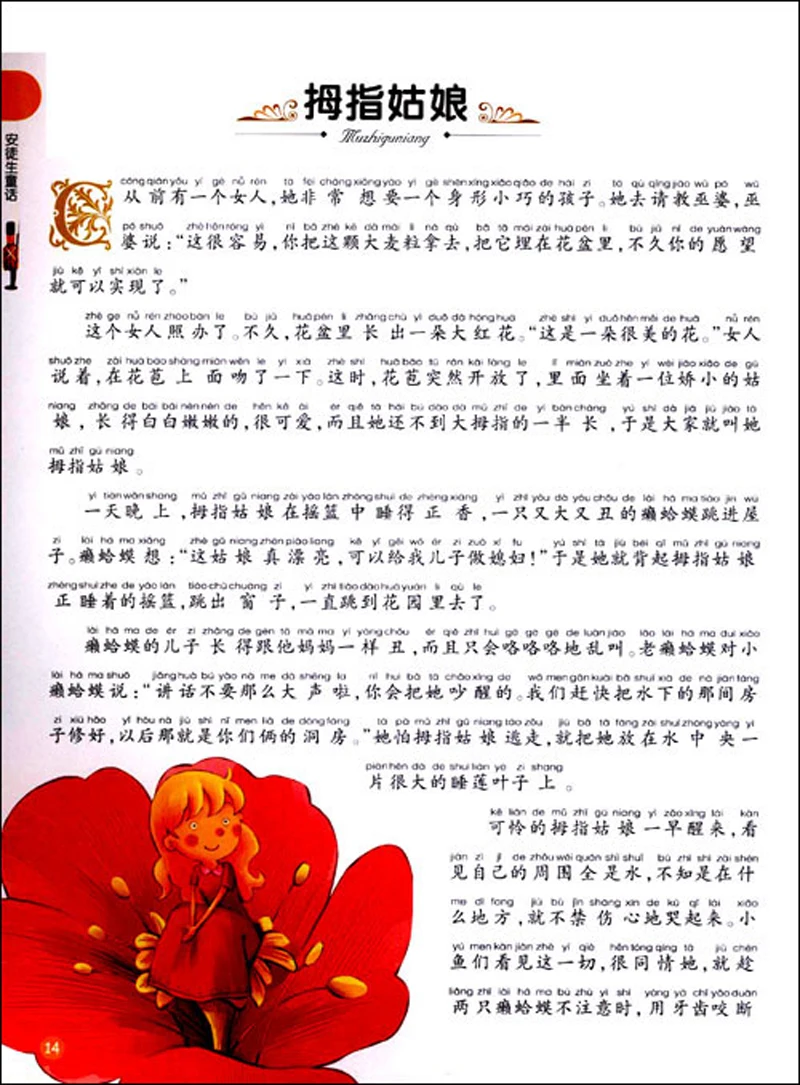 安徒生童话
拇指姑娘
Muzhiguniang
cóng qián yǒu yí gè nǚ rén tā fēi cháng xiǎng yào yí gè shēn xíng xiǎo qiǎo de hái zi tā qù qǐng jiào wū pó wū
从前有一个女人，她非常想要一个身形小巧的孩子。她去请教巫婆，巫
pó shuō zhè hěn róng yì nǐ bǎ zhè kē dà mài lì ná qù bǎ tā mái zài huā pén li bù jiǔ nǐ de yuàn wàng
婆说：“这很容易，你把这颗大麦粒拿去，把它埋在花盆里，不久你的愿望
jiù kě yǐ shí xiàn le
就可以实现了。”
zhè ge nǚ rén zhào bàn le bù jiǔ huā pén li zhǎng chū yì duǒ dà hóng huā zhè shì yì duǒ hěn měi de huā nǚ rén
这个女人照办了。不久，花盆里长出一朵大红花。“这是一朵很美的花。”女人
shuō zhe zài huā bāo shàng miàn wěn le yí xià zhè shí huā bāo tū rán kāi fàng le lǐ miàn zuò zhe yí wèi jiāo xiǎo de gū
说着，在花苞上面吻了一下。这时，花苞突然开放了，里面坐着一位娇小的姑
niang zhǎng de bái bái nèn nèn de hěn kě ài ér qiě tā hái bú dào dà mǔ zhǐ de yí bàn cháng yú shì dà jiā jiù jiào tā
娘，长得白白嫩嫩的，很可爱，而且她还不到大拇指的一半长，于是大家就叫她
mǔ zhǐ gū niang
拇指姑娘。
yì tiān wǎn shang mǔ zhǐ gū niang zài yáo lán zhōng shuì de zhèng xiāng yì zhī yòu dà yòu chǒu de lài há ma tiào jìn wū
一天晚上，拇指姑娘在摇篮中睡得正香，一只又大又丑的癞蛤蟆跳进屋
zi lài há ma xiǎng zhè gū niang zhēn piào liang kě yǐ gěi wǒ ér zi zuò xí fu yú shì tā jiù bēi qǐ mǔ zhǐ gū niang
子。癞蛤蟆想：“这姑娘真漂亮，可以给我儿子做媳妇！”于是她就背起拇指姑娘
zhèng shuì zhe de yáo lán tiào chū chuāng zi yì zhí tiào dào huā yuán li qù le
正睡着的摇篮，跳出窗子，一直跳到花园里去了。
lài há ma de ér zi zhǎng de gēn tā mā ma yí yàng chǒu ér qiě zhǐ huì gē gē gē de luàn jiào lǎo lài há ma duì xiǎo
癞蛤蟆的儿子长得跟他妈妈一样丑，而且只会咯咯咯地乱叫。老癞蛤蟆对小
lài há ma shuō jiǎng huà bú yào nà me dà shēng la nǐ huì bǎ tā chǎo xǐng de wǒ men gǎn kuài bǎ shuǐ xià de nà jiān fáng
癞蛤蟆说：“讲话不要那么大声啦，你会把她吵醒的。我们赶快把水下的那间房
zi xiū hǎo yǐ hòu nà jiù shì nǐ men liǎ de dòng fáng tā pà mǔ zhǐ gū niang táo zǒu jiù bǎ tā fàng zài shuǐ zhōng yāng yí
子修好，以后那就是你们俩的洞房。”她怕拇指姑娘逃走，就把她放在水中央一
piàn hěn dà de shuì lián yè zi shang
片很大的睡莲叶子上。
kě lián de mǔ zhǐ gū niang yì zǎo xǐng lái kàn
可怜的拇指姑娘一早醒来，看
jiàn zì jǐ de zhōu wéi quán shì shuǐ bù zhī shì zài shén
见自己的周围全是水，不知是在什
me dì fang jiù bù jīn shāng xīn de kū qǐ lái xiǎo
么地方，就不禁伤心地哭起来。小
yú men kàn jiàn zhè yí qiè hěn tóng qíng tā jiù chèn
鱼们看见这一切，很同情她，就趁
liǎng zhī lài há ma bú zhù yì shí yòng yá chǐ yǎo duàn
两只癞蛤蟆不注意时，用牙齿咬断
14